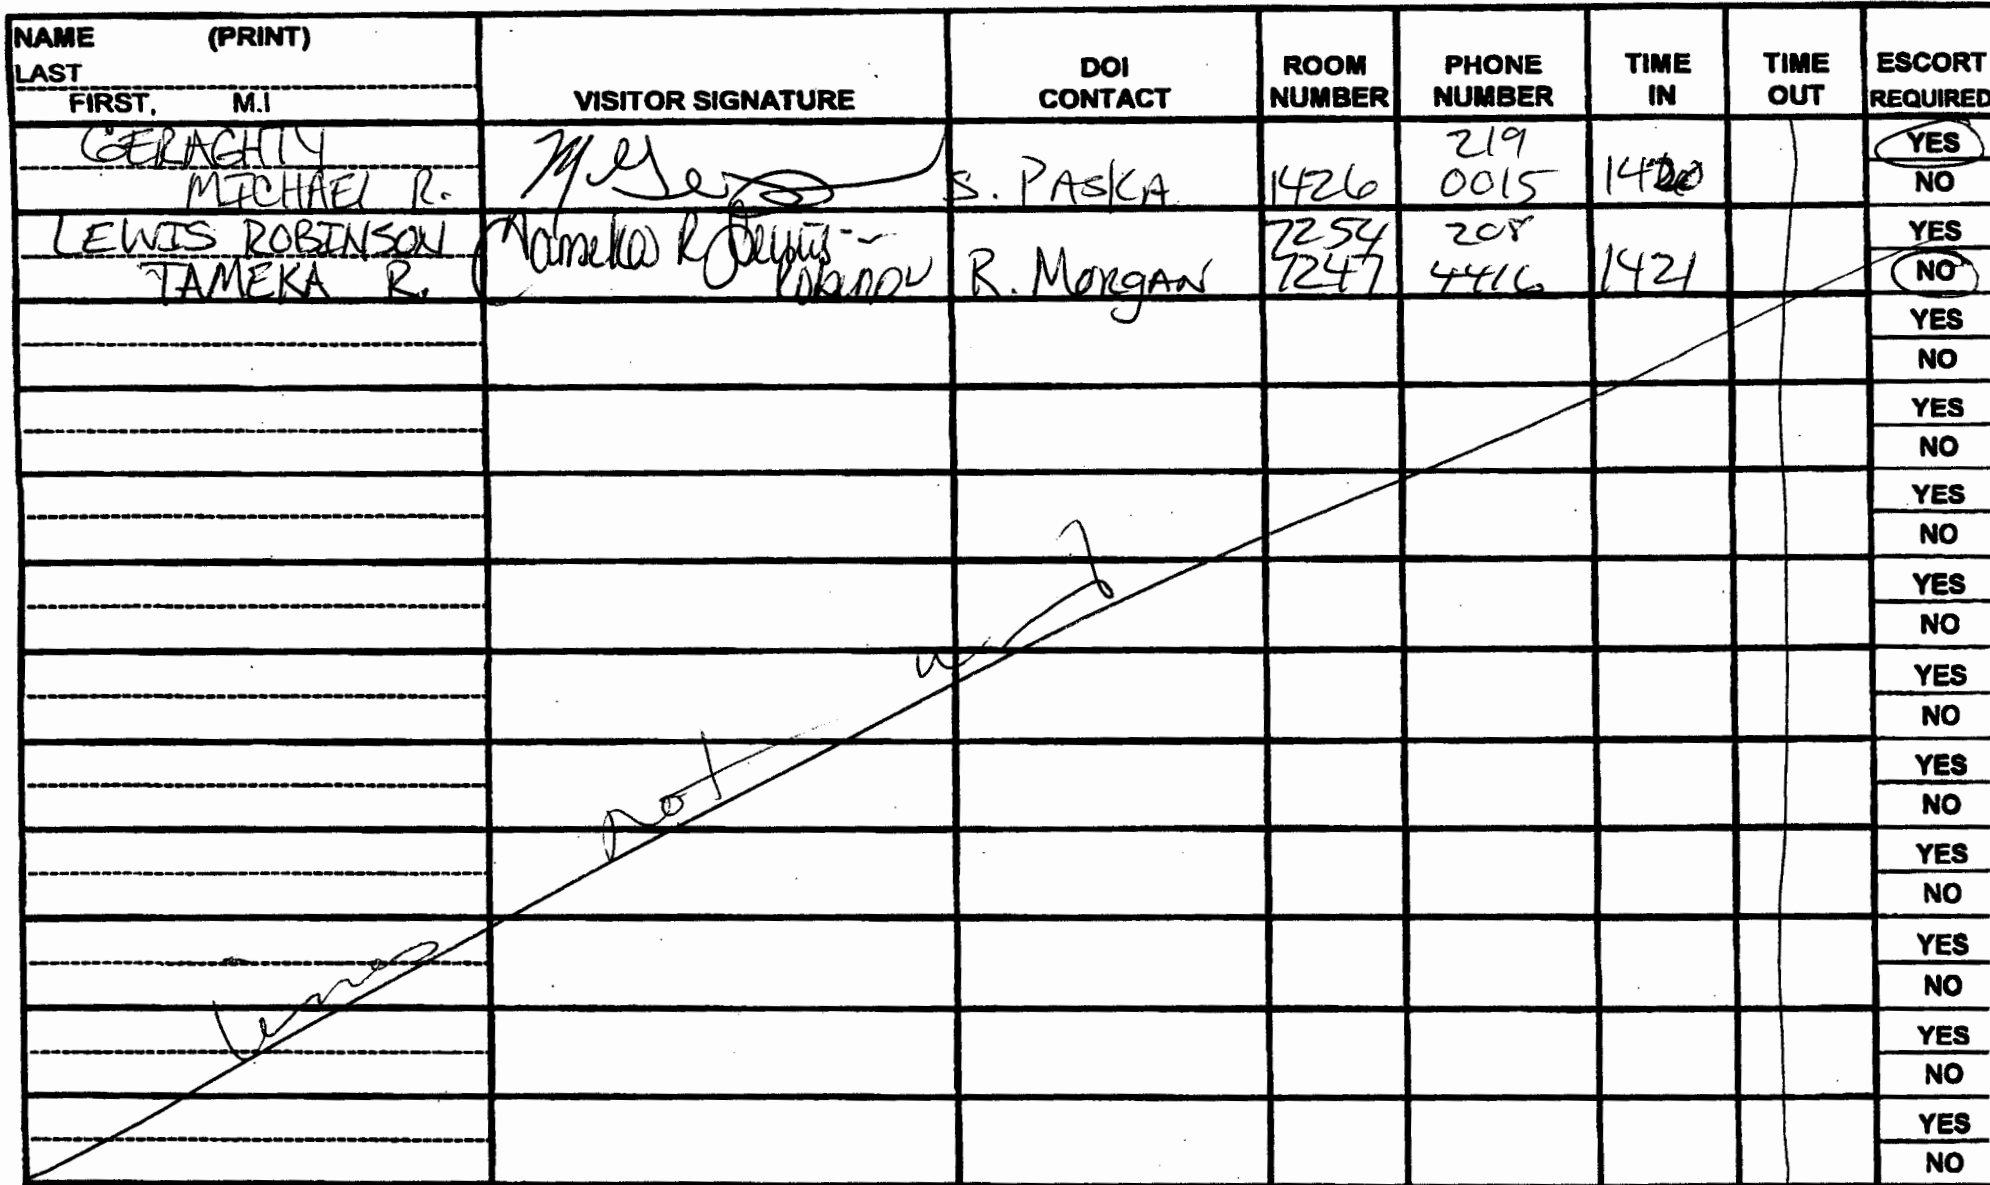 NAME (PRINT)
LAST
FIRST, M.I
VISITOR SIGNATURE
DOI CONTACT
ROOM NUMBER
PHONE NUMBER
TIME IN
TIME OUT
ESCORT REQUIRED
GERAGHTY
MICHAEL R.
S. PASKA
1426
219
0015
1420
YES
NO
LEWIS ROBINSON
TAMEKA R.
Tameka R Lewis-
Robinson
R. MORGAN
7254
7247
208
4416
1421
YES
NO
YES
NO
YES
NO
YES
NO
YES
NO
YES
NO
YES
NO
YES
NO
YES
NO
YES
NO
YES
NO
Lines not used